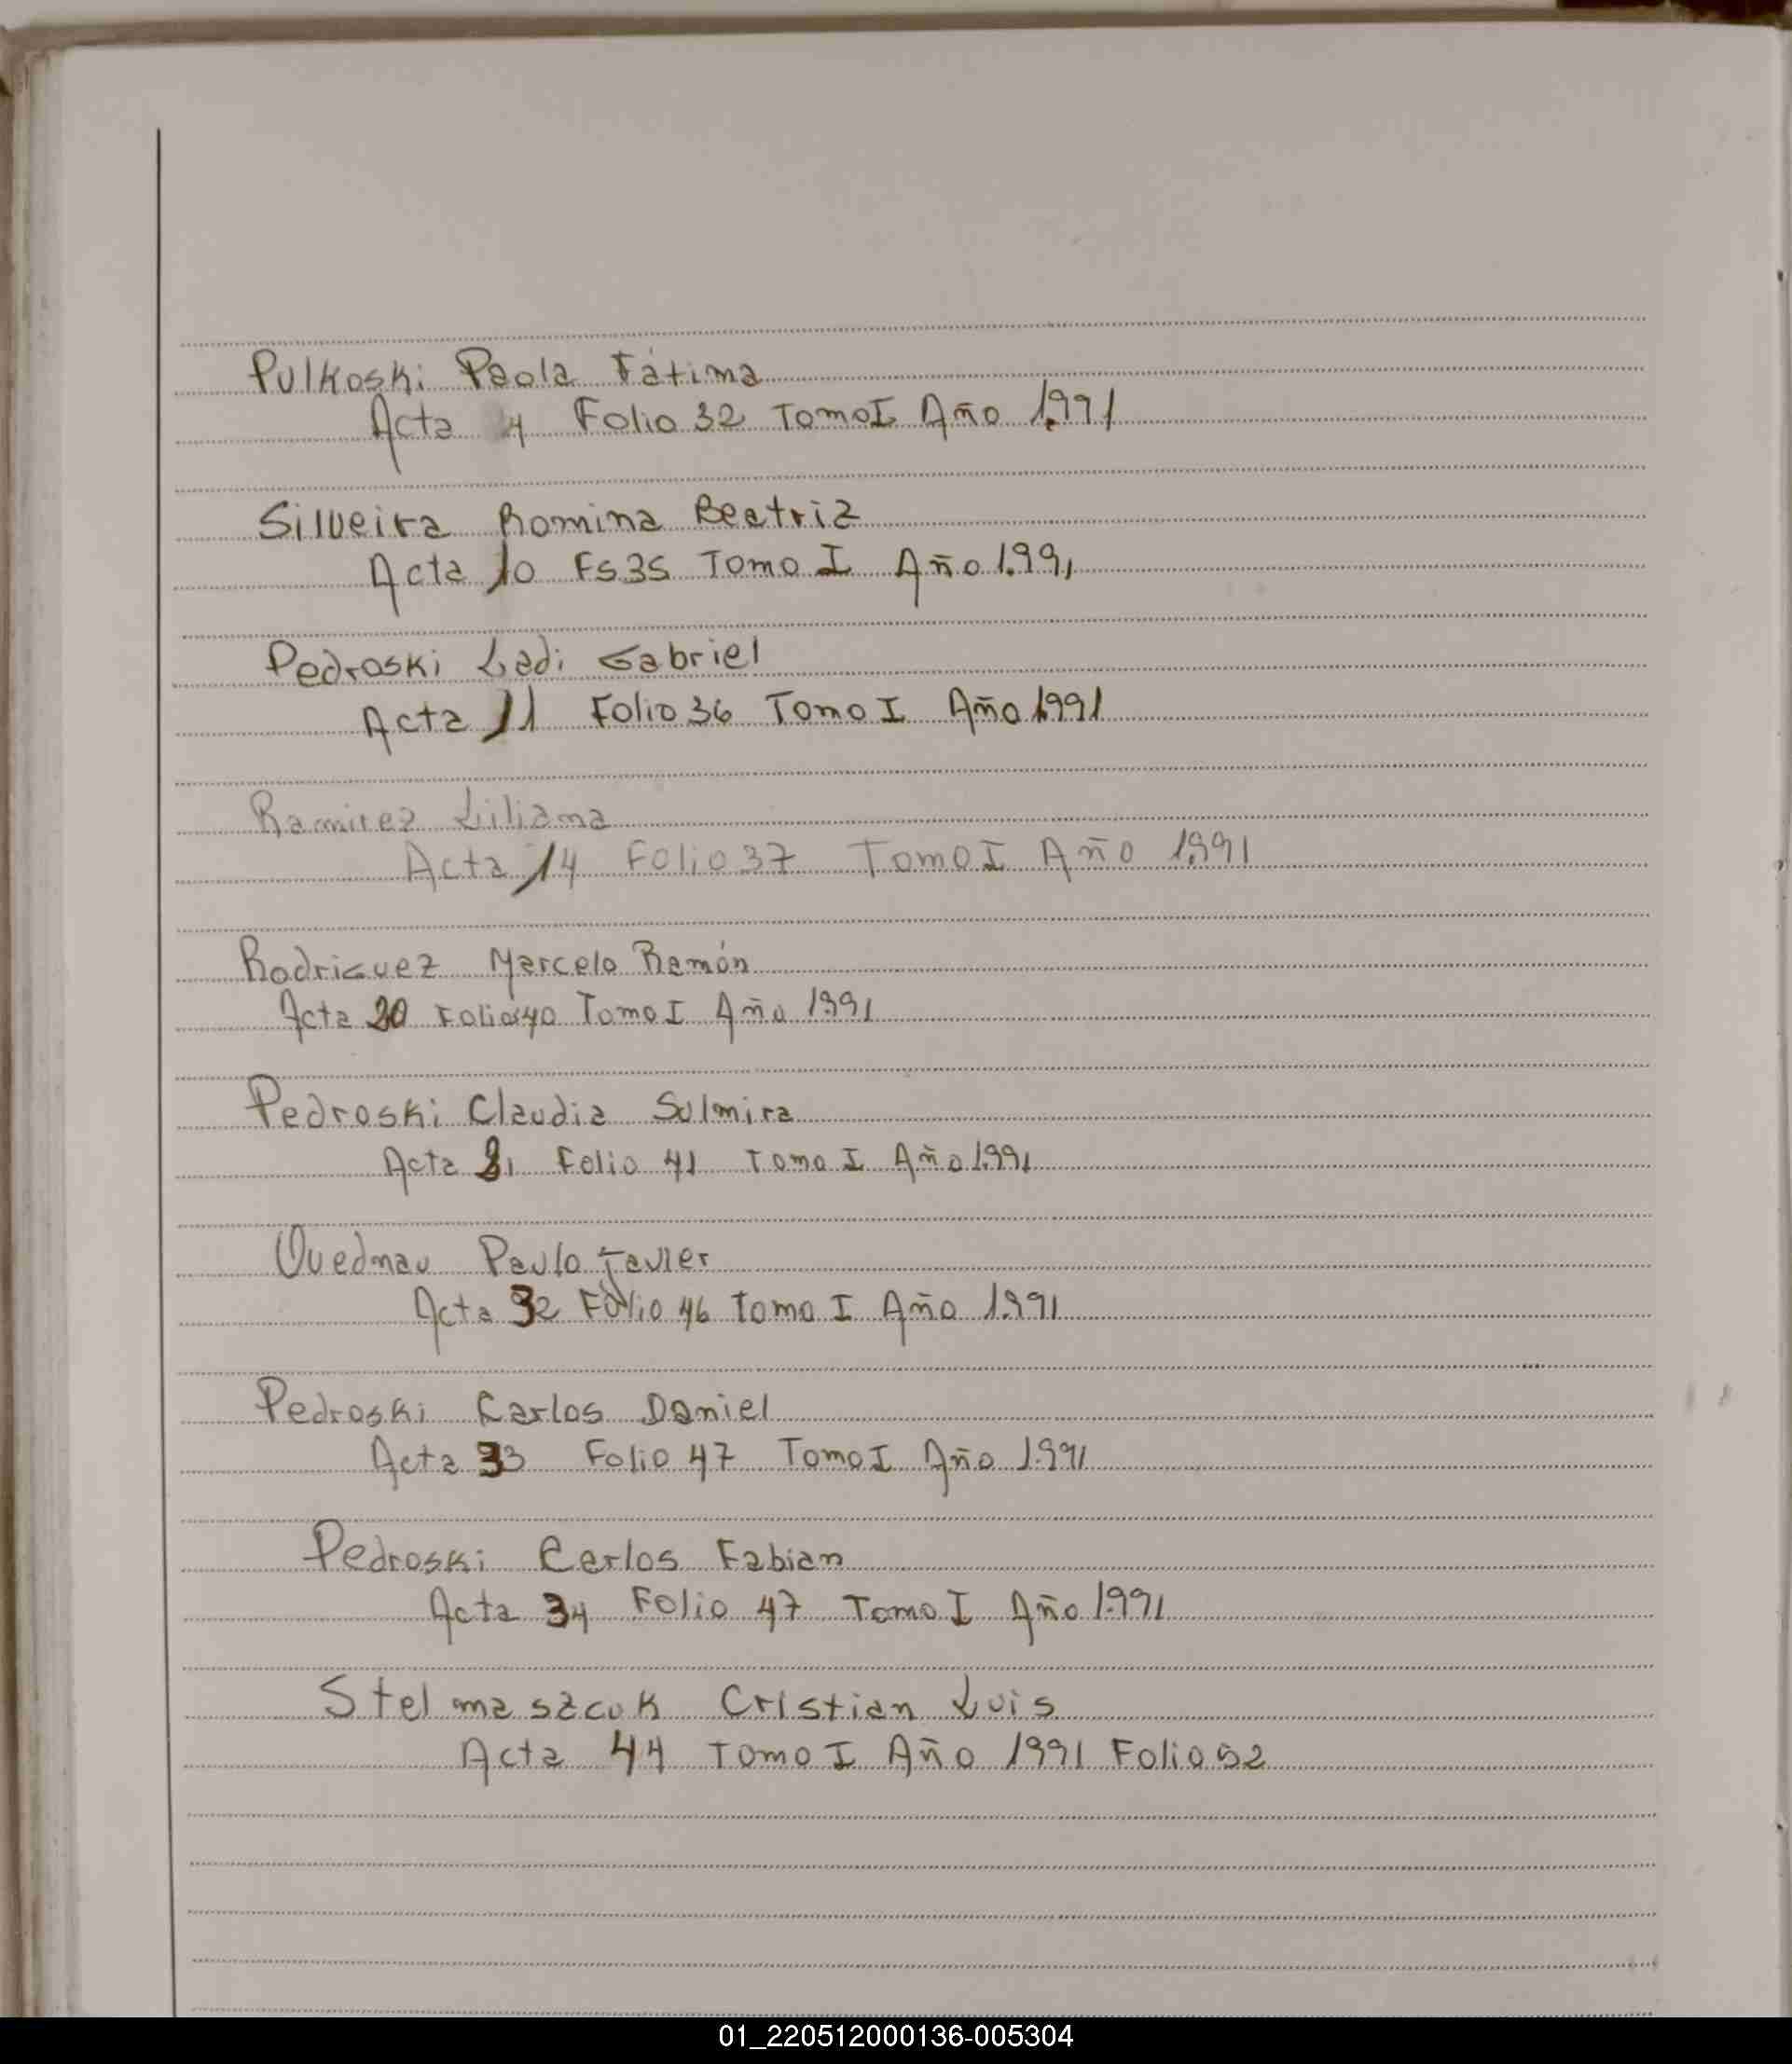 Pulkoski Paola Fátima
Acta 4 Folio 32 Tomo I Año 1.991
Silveira Romina Beatriz
Acta 10 Fs 35 Tomo I Año 1.991
Pedroski Ladi Gabriel
Acta 11 Folio 36 Tomo I Año 1991
Ramirez Liliana
Acta 14 Folio 37 Tomo I Año 1.991
Rodriguez Marcelo Ramón
Acta 20 Folio 40 Tomo I Año 1991
Pedroski Claudia Sulmira
Acta 21 Folio 41 Tomo I Año 1.991
Quednau Paulo Javier
Acta 32 Folio 46 Tomo I Año 1.991
Pedroski Carlos Daniel
Acta 33 Folio 47 Tomo I Año 1.991
Pedroski Carlos Fabian
Acta 34 Folio 47 Tomo I Año 1.991
Stelmaszcuk Cristian Luis
Acta 44 Tomo I Año 1991 Folio 52
01_220512000136-005304